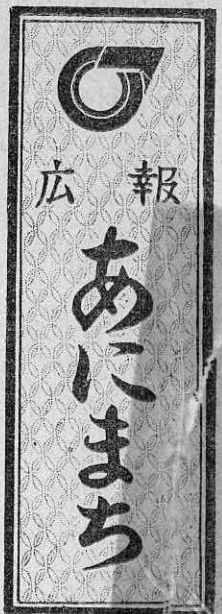 広報
あにまち